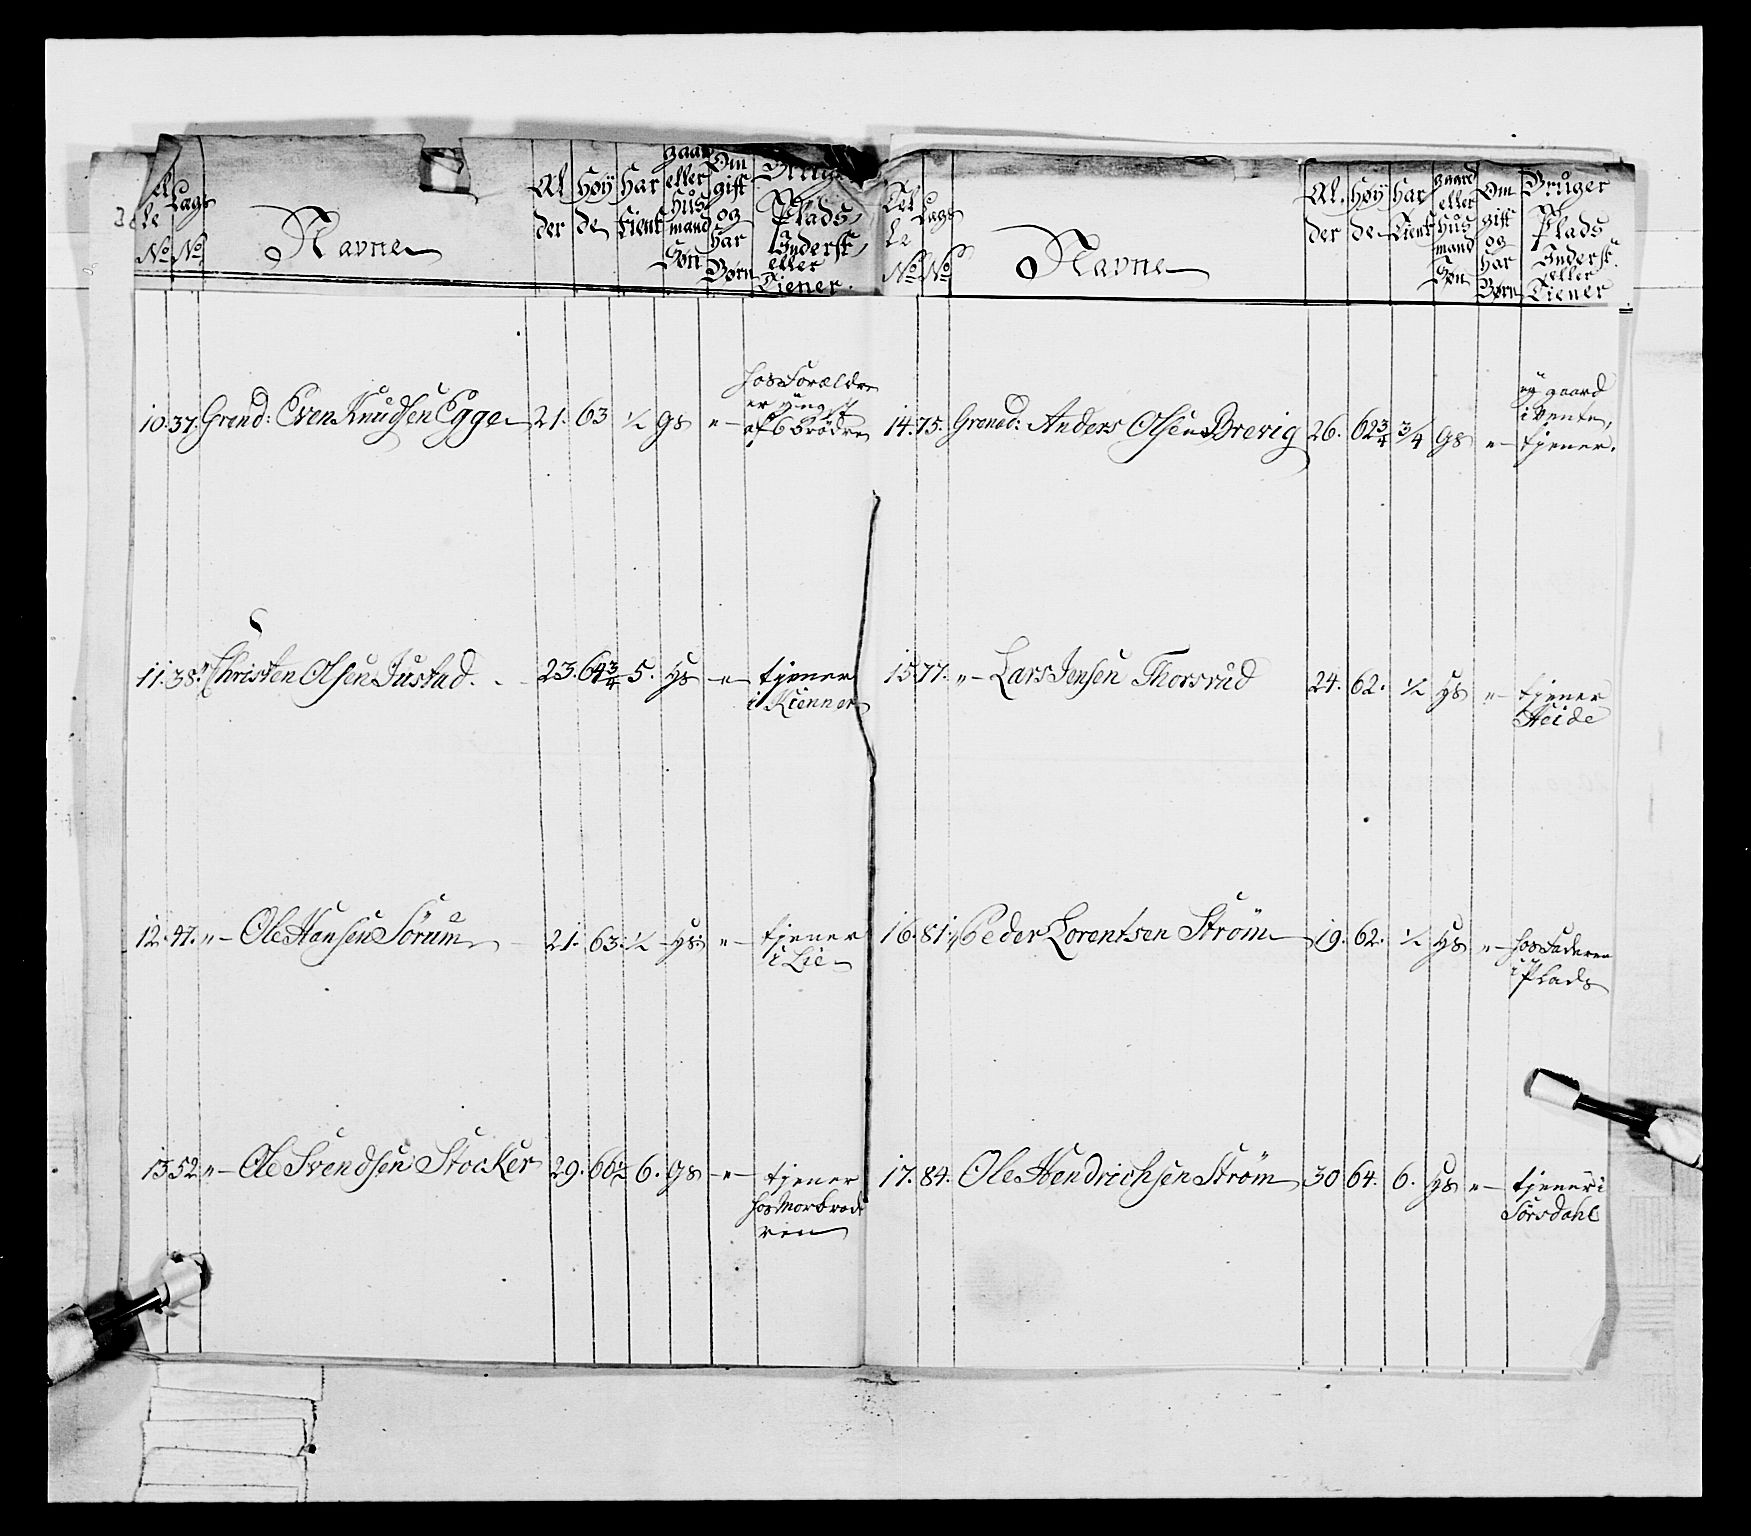 Tel
le
No
Lags
No
Navne
Al
der
Høÿ
de
Har
Tient
gaar
eller
Hus
mand
Søn
Om
gift
og
har
Børn
Brug
Plads
Inderst
eller
Tiener.
10. 37. Grend: Even Knudsen Egge 21. 63 1/2 gs „ hos Forældre
er yngst
af 6 Brødre
11. 38. „ Christen Olsen Justad. 23. 64 3/4 5. Hs „ tjener
i Kienner
12. 47. „ Ole Hansen Sørum 21. 63. 1/2 Hs „ tjener
i Lie
13. 52. „ Ole Svendsen Stocker 29. 66 1/2 6. gs „ tjener
hos Morbrode
ren
Tel
le
No
Lags
No
Navne
Al.
der
Høÿ
de
Har
Tient
gaard
eller
Hus
mand
Søn
Om
gift
og
har
Børn
Bruger
Plads
Inderst.
eller
Tiener
14. 75. Grenad: Anders Olsen Brevig 26. 62 3/4 3/4 gs „ gaard
i vente,
tjener.
15. 77. „ Lars Jensen Thorsrud 24. 62. 1/2 Hs „ tjener
Heide
16. 81. „ Peder Lorentsen Strøm 19. 62. 1/2 Hs „ hos Faderen
i Plads
17. 84. Ole Hendrichsen Strøm 30 64. 6. Hs „ tjener i
Sørsdahl